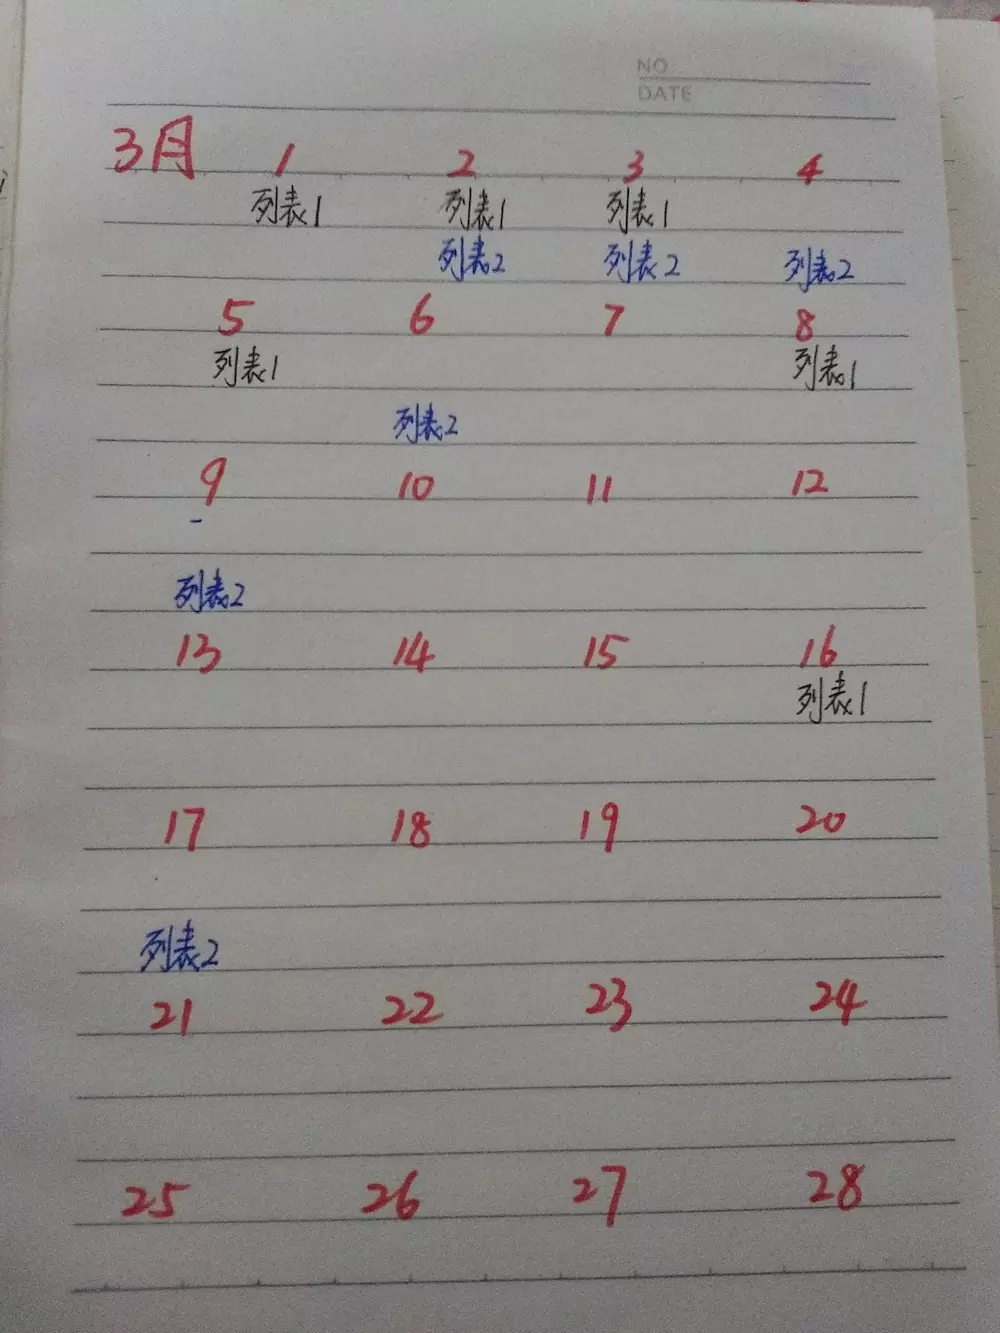 NO
DATE
3月 1 2 3 4
列表1 列表1 列表1
列表2 列表2 列表2
5 6 7 8
列表1 列表1
列表2
9 10 11 12
列表2
13 14 15 16
列表1
17 18 19 20
列表2
21 22 23 24
25 26 27 28